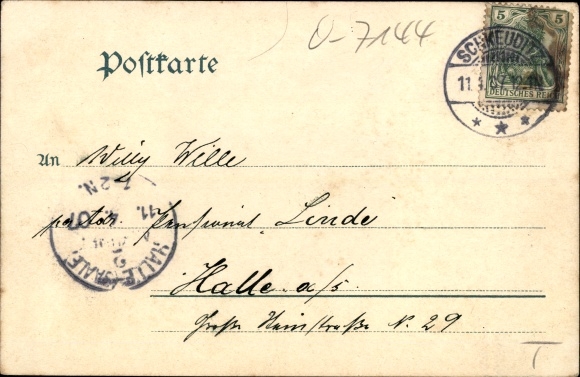 O-7144
Postkarte
SCHKEUDITZ
5 5
DEUTSCHES REICH
An Willy Wille
Pensionat Linde
7-2N.
11. 4. 07
HALLE (SAALE)
2
Halle a/S
Große Steinstraße N. 29
T